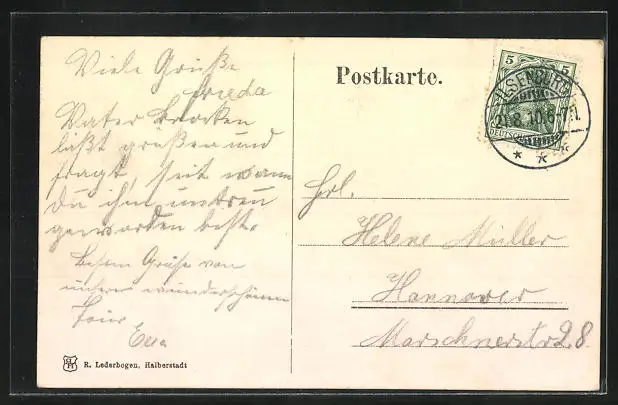 Viele Grüße
Frieda
Vater Brocken
läßt grüßen und
fragt, seit wann
Du ihm untreu
geworden bist.
Besten Grüße von
unserer wunderschönen
Tour
R. Lederbogen, Halberstadt
Postkarte.
5 5
ILSENBURG
21.8.10.6-7N.
Frl.
Helene Müller
Hannover
Marschnerstr 28.